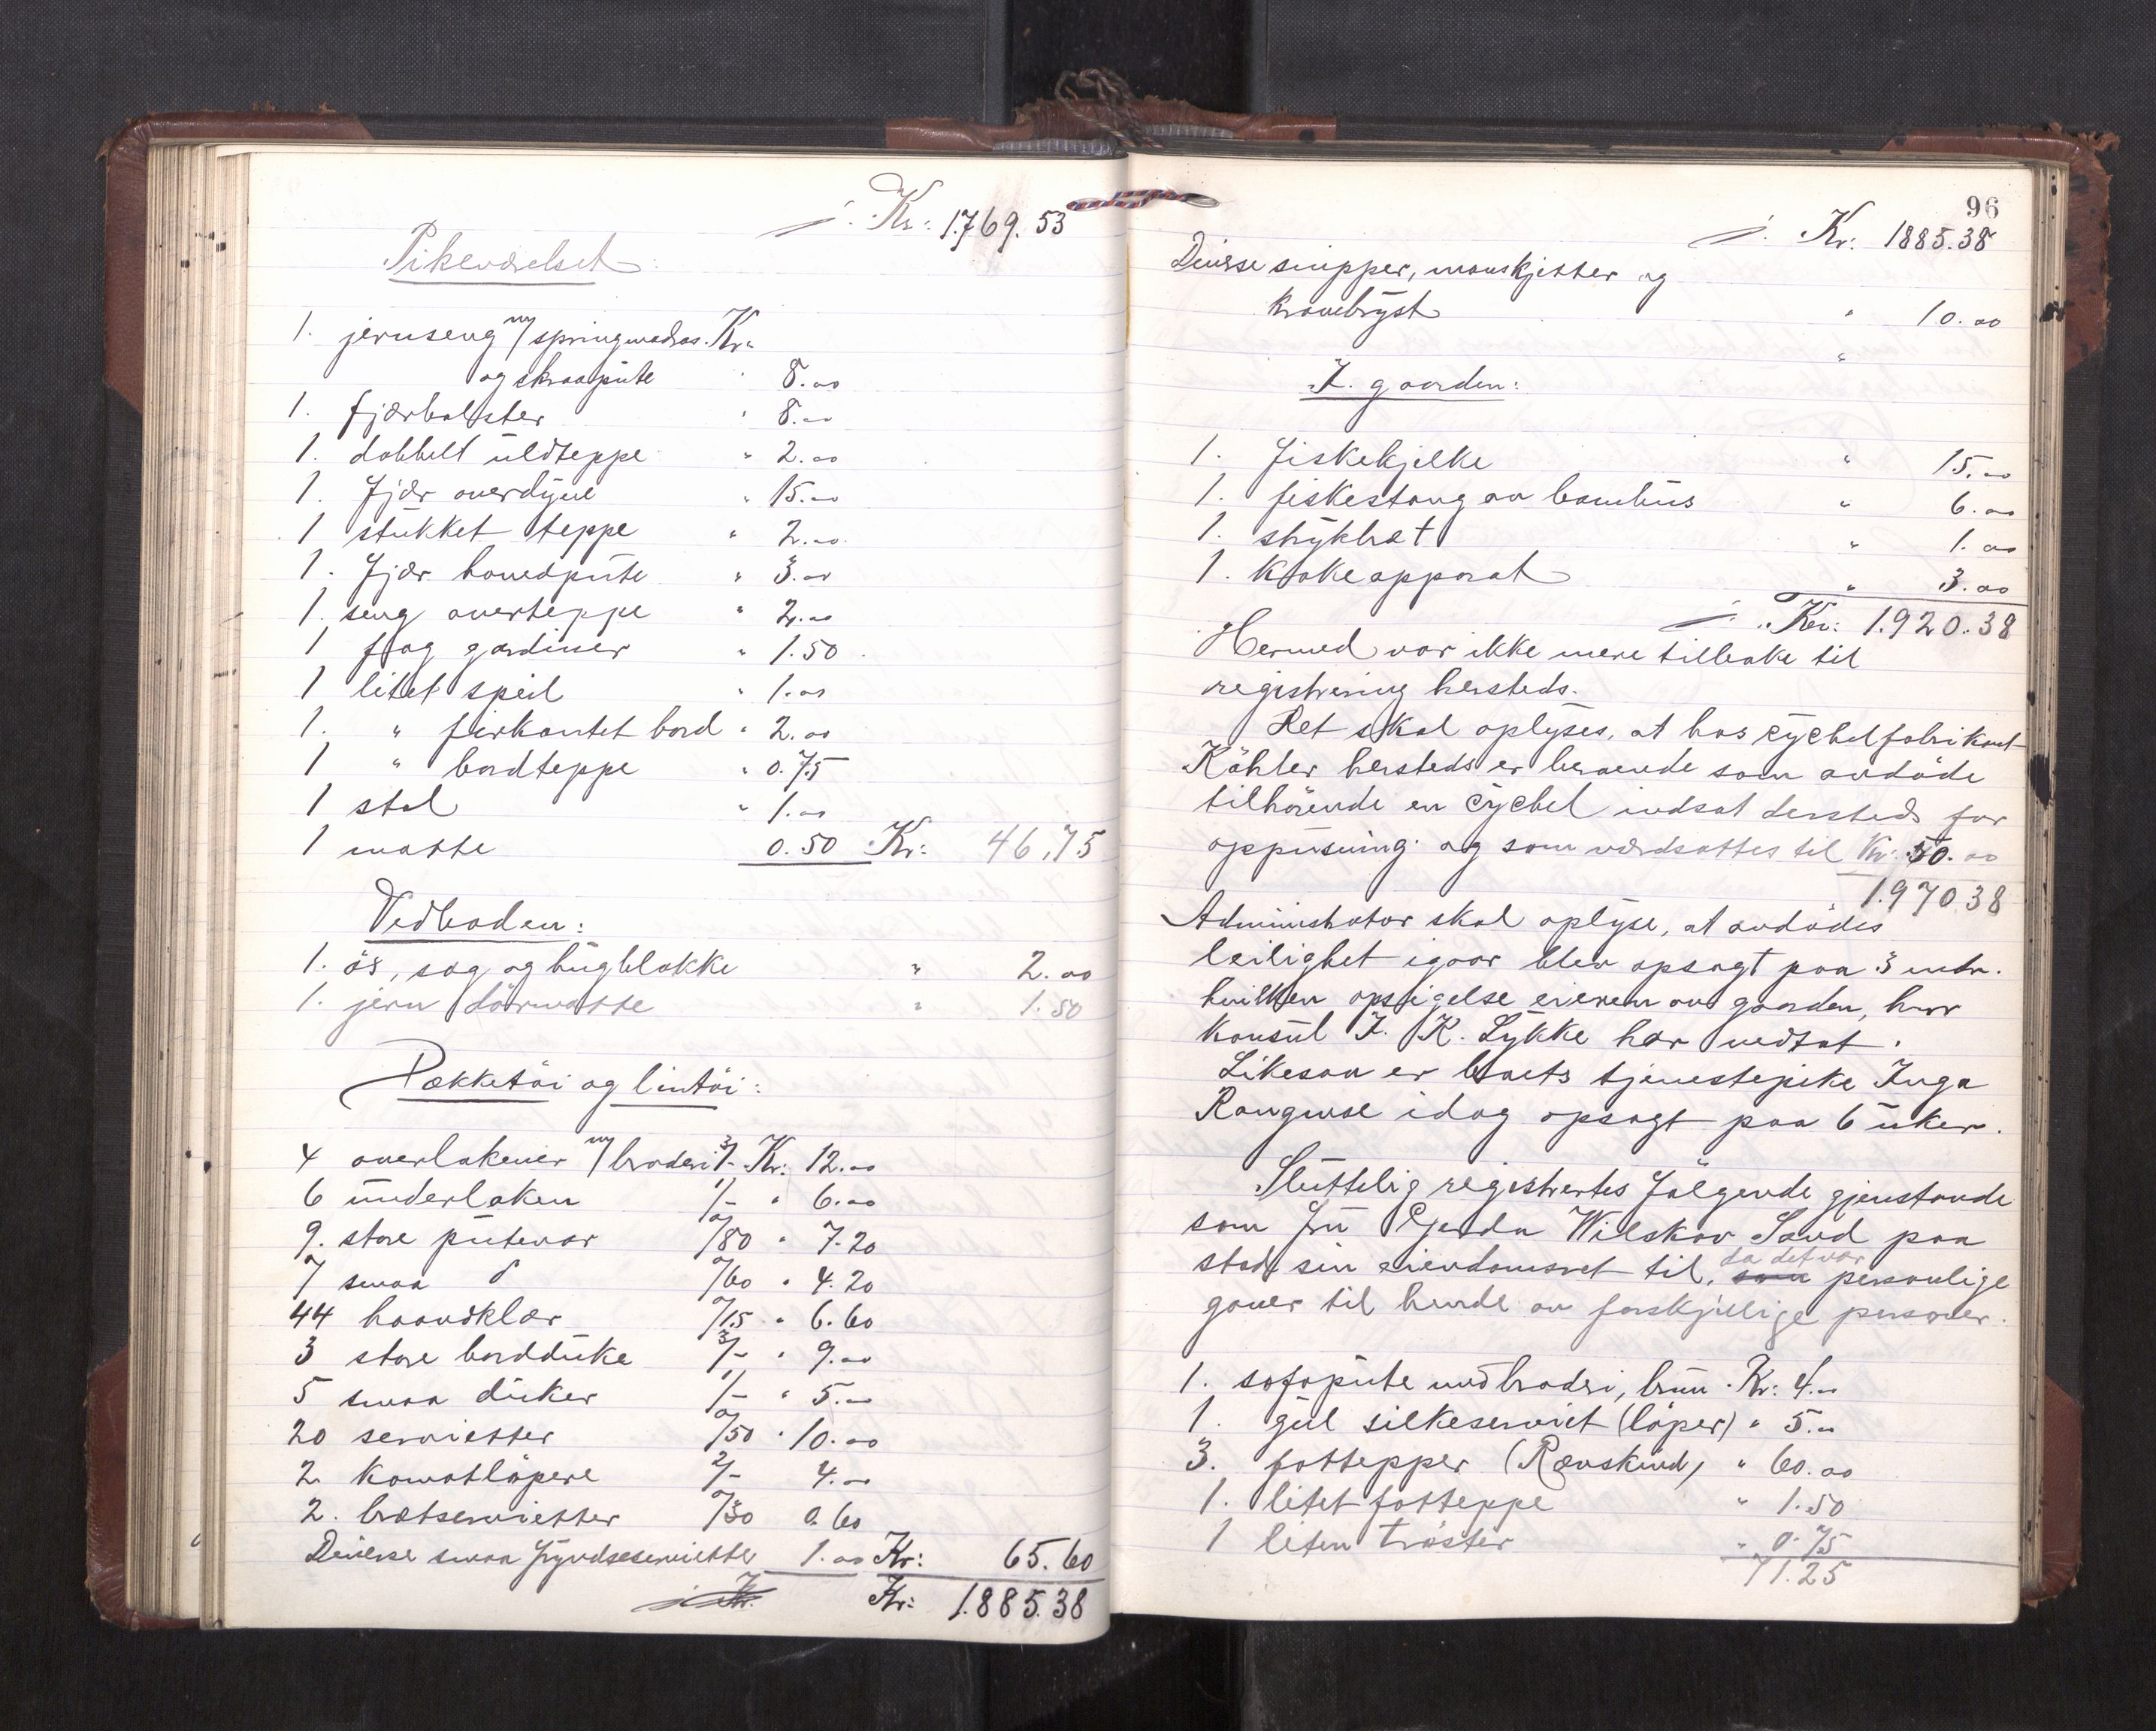 ÷ Kr: 1769.53
Pikeværelset:
1. jernseng m/ springmadras. Kr.
og skraapute " 8.00
1. fjærbolster " 8.00
1. dobbelt uldteppe " 2.00
1. Fjær overdyne " 15.00
1 stukket teppe " 2.00
1. Fjær hovedpute " 3.00
1. seng overteppe " 2.00
1 fag gardiner " 1.50
1 litet speil " 1.00
1. " firkantet bord " 2.00
1 " bordteppe " 0.75
1 stol " 1.00
1 matte 0.50 Kr: 46,75
Vedboden:
1. øs, sag og hugblokke " 2.00
1. jern dørmatte " 1.50
Dækketøi og lintøi:
4 overlakener m/ broderi 3/- Kr: 12.00
6 underlaken 1/- " 6.00
9. store putevar 0/80 " 7.20
7 smaa d 0/60 " 4.20
44 haandklær 0/15 " 6.60
3 store bordduke 3/- " 9.00
5 smaa duker 1/- " 5.00
20 servietter 0/50 " 10.00
2 komotløpere 2/- 4.00
2. brætservietter 0/30 0.60
Diverse smaa pryndseserviette 1.00 Kr: 65.60
Kr: 1.885.38
96
÷ Kr: 1885.38
Diverse snipper, manskjetter og
kravebryst " 10.00
"
I gaarden:
1. Fiskekjelke " 15.00
1. fiskestang av bambus " 6.00
1. strykbræt " 1.00
1. kokeapparat " 3.00
÷ Kr: 1.920.38
Hermed var ikke mere tilbake til
registrering hersteds.
Det skal oplyses, at hos cyckelfabrikant
Köhler hersteds er beroende som avdøde
tilhørende en cyckel indsat dersteds for
oppusning og som værdsattes til Kr: 50.00
1.970.38
Administrator skal oplyse, at avdødes
leilighet igaar blev opsagt paa 3 mdr.
hvilken opsigelse eieren av gaarden, herr
konsul I. K. Lykke har vedtat.
Likesaa er boets tjenestepike Inga
Rangmse idag opsagt paa 6 uker.
Sluttelig registrertes følgende gjenstande
som fru Gerda Wilskov Sand paa
stod sin eiendomsret til, som da det var personlige
gaver til hende av forskjellige personer.
1. sofapute med broderi, brun. Kr: 4.00
1. gul silkeserviet (løper) " 5.00
3. fottepper (Rævskind) " 60.00
1. litet fotteppe " 1.50
1 liten trøster " 0.75
71.25